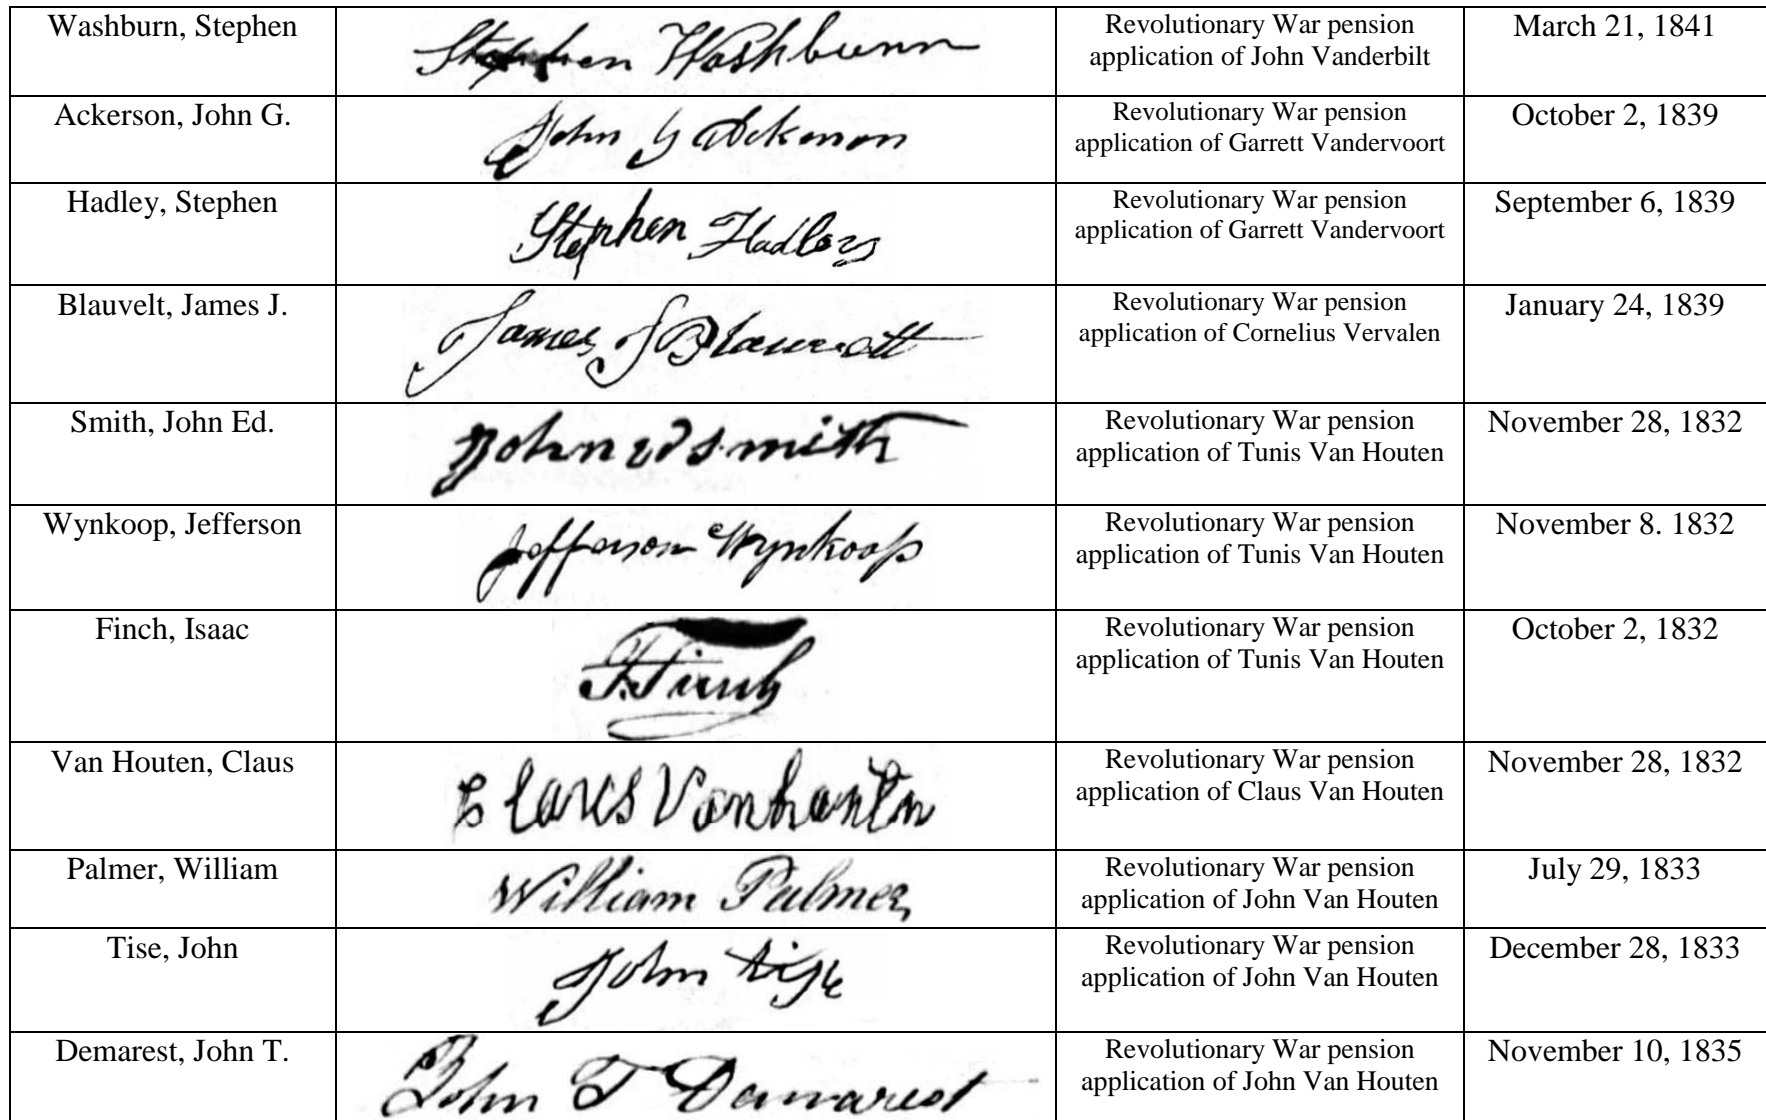 Washburn, Stephen
Stephen Washburn
Revolutionary War pension
application of John Vanderbilt
March 21, 1841
Ackerson, John G.
John G Ackerson
Revolutionary War pension
application of Garrett Vandervoort
October 2, 1839
Hadley, Stephen
Stephen Hadley
Revolutionary War pension
application of Garrett Vandervoort
September 6, 1839
Blauvelt, James J.
James J Blauvelt
Revolutionary War pension
application of Cornelius Vervalen
January 24, 1839
Smith, John Ed.
John ed smith
Revolutionary War pension
application of Tunis Van Houten
November 28, 1832
Wynkoop, Jefferson
Jefferson Wynkoop
Revolutionary War pension
application of Tunis Van Houten
November 8. 1832
Finch, Isaac
I. Finch
Revolutionary War pension
application of Tunis Van Houten
October 2, 1832
Van Houten, Claus
Claus Vanhouten
Revolutionary War pension
application of Claus Van Houten
November 28, 1832
Palmer, William
William Palmer
Revolutionary War pension
application of John Van Houten
July 29, 1833
Tise, John
John tise
Revolutionary War pension
application of John Van Houten
December 28, 1833
Demarest, John T.
John T Demarest
Revolutionary War pension
application of John Van Houten
November 10, 1835